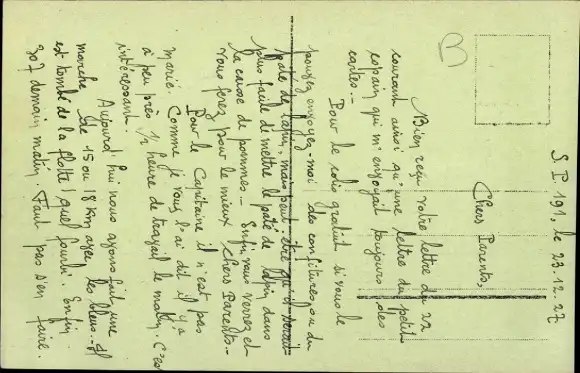 S. P 191, le 23.12.27
Chers Parents,
Bien reçu votre lettre du 22
courant ainsi qu'une lettre du petit
copain qui m'envoyait toujours des
cartes.-
Pour le colis gratuit si vous le
pouvez envoyez-moi des confitures, ou du
pâté de lapin, mais peut-être qu'il serait
plus facile de mettre le pâté de lapin dans
la caisse de pommes.- Enfin vous verrez et
vous ferez pour le mieux Chers Parents.-
Pour le Capitaine il n'est pas
marié. Comme je vous l'ai dit il y a
à peu près 1/2 heure de travail le matin. C'est
intéressant.
Aujourd'hui nous avons fait une
marche de 15 ou 18 Km avec les bleus.- Il
est tombé de la flotte! quel fourbi. Enfin
307 demain matin. Faut pas s'en faire.